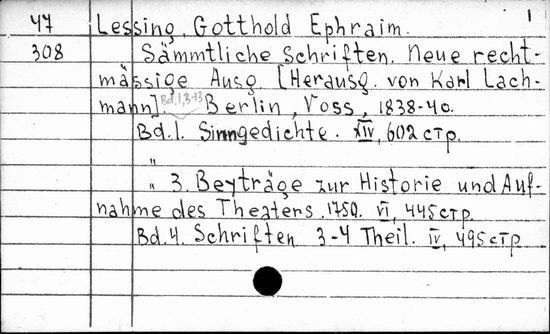 47 Lessing, Gotthold Ephraim. 1
308 Sämmtliche Schriften. Neue recht-
mässige Ausg [Herausg. von Karl Lach-
mann]. Bd. 1, 3-13 Berlin, Voss, 1838-40.
Bd. 1. Sinngedichte. XIV, 602 стр.
"
" 3. Beyträge zur Historie und Auf-
nahme des Theaters. 1750. VI, 445 стр.
Bd. 4. Schriften 3-4 Theil. IV, 495 стр